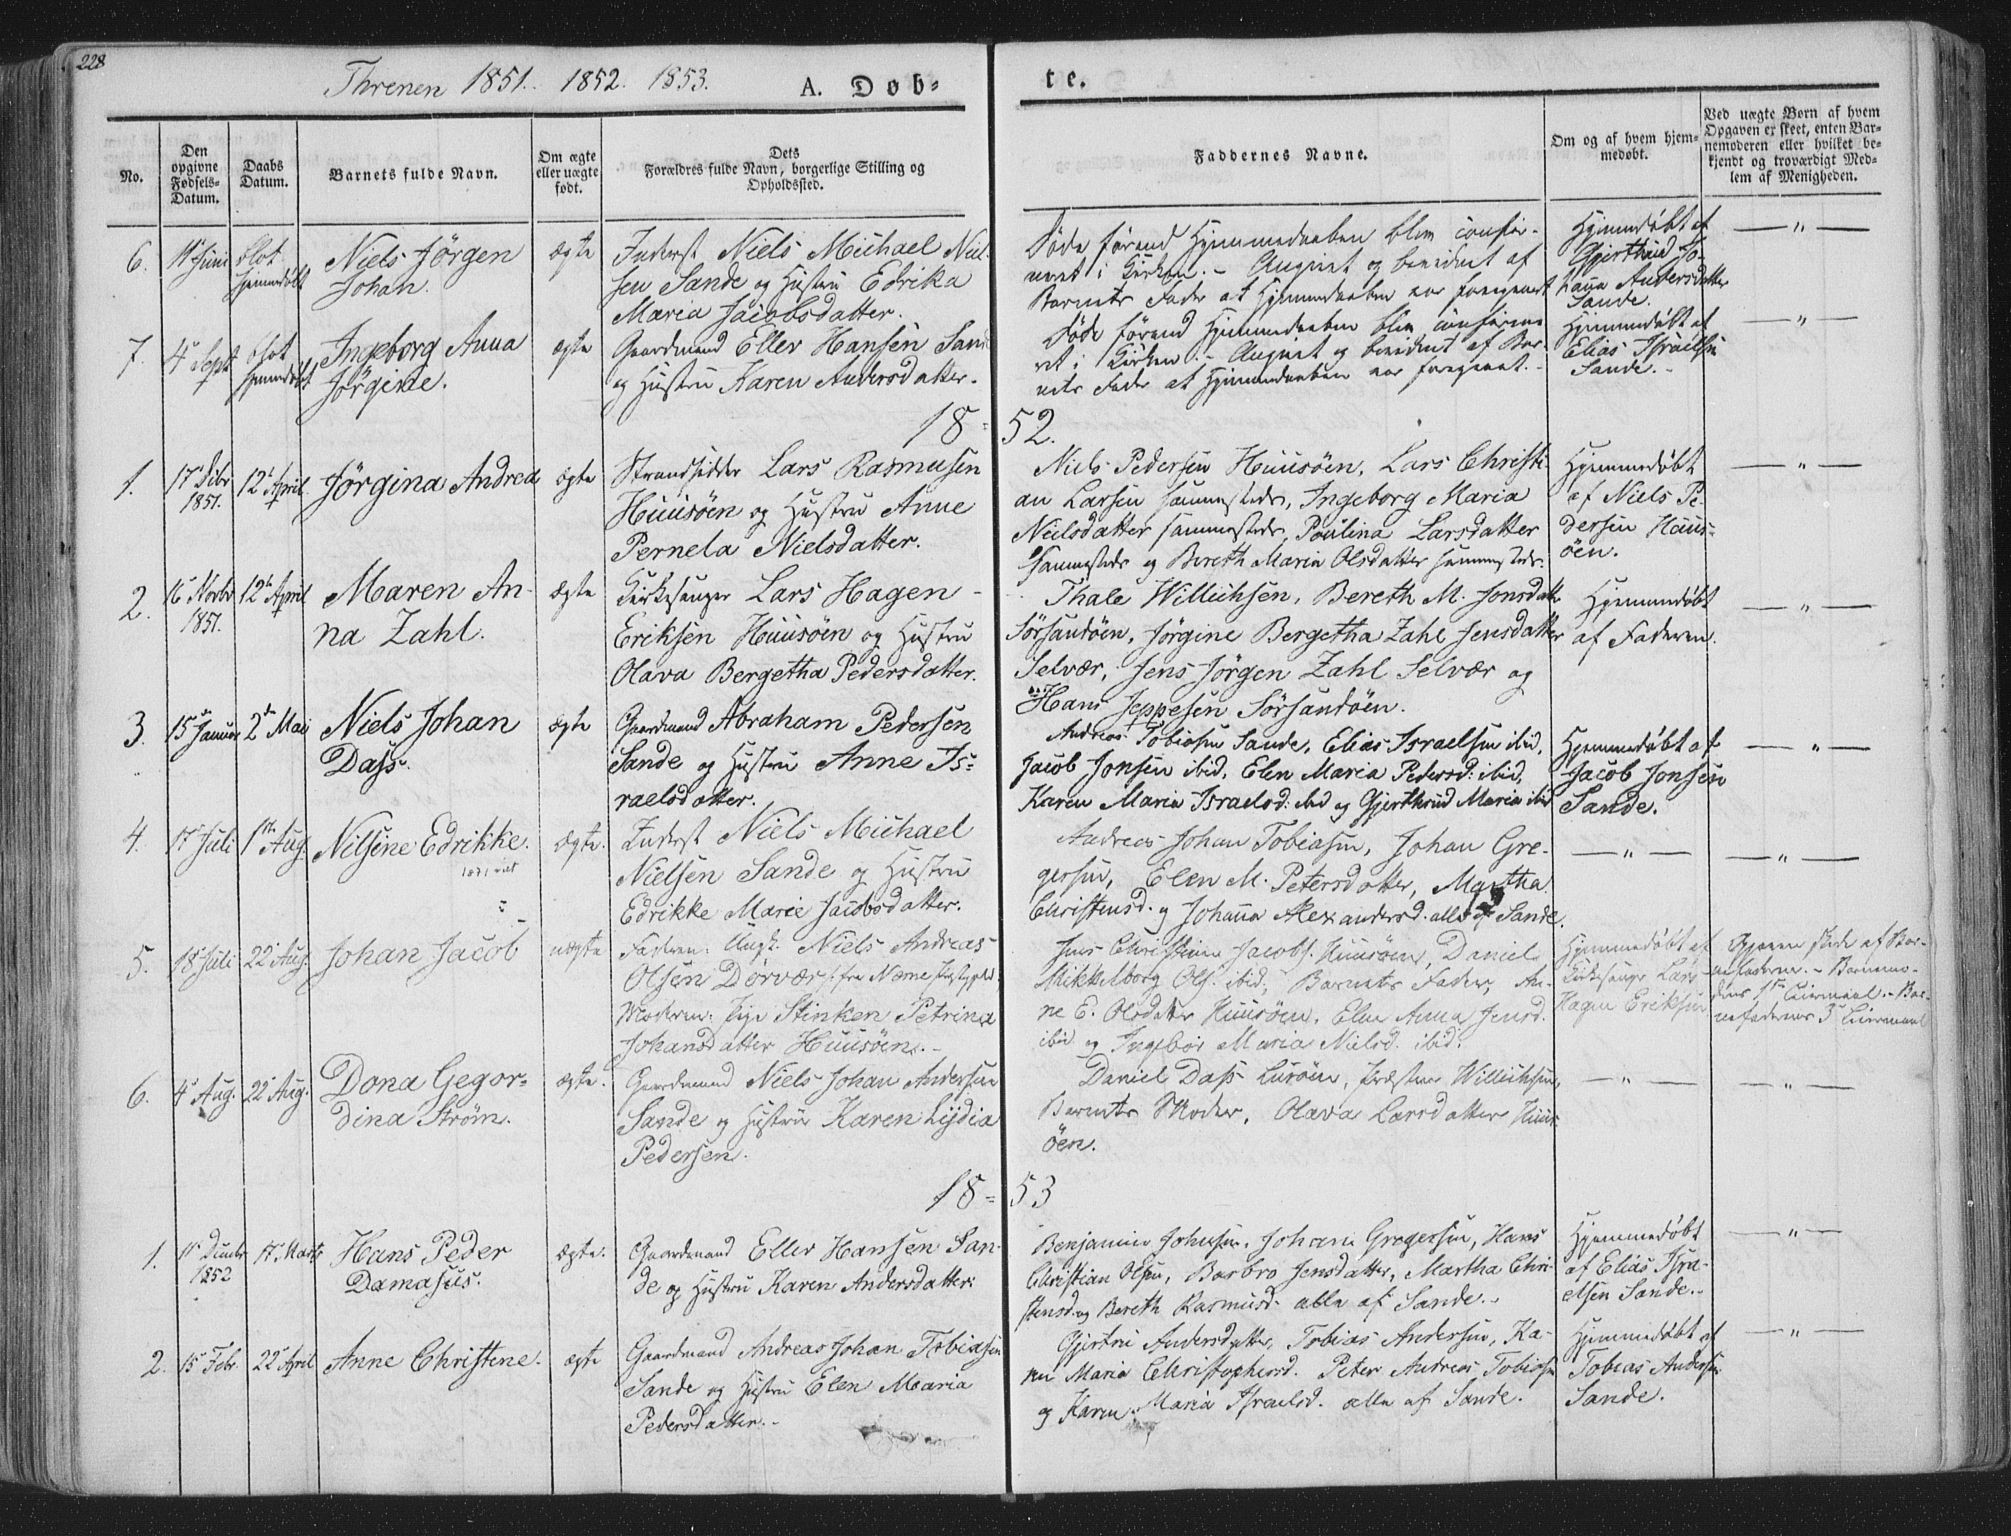 228
Threnen 1851. 1852. 1853.
A. Døb=
te.
No.
Den
opgivne
Fødsels-
Datum.
Daabs
Datum.
Barnets fulde Navn.
Om ægte
eller uægte
født.
Dets
Forældres fulde Navn, borgerlige Stilling og
Opholdssted.
Faddernes Navne.
Om og af hvem hjem-
medøbt.
Ved uægte Børn af hvem
Opgaven er skeet, enten Bar-
nemoderen eller hvilket be-
kjendt og troværdigt Med-
lem af Menigheden.
6.
11 Juni
blot
hjemmedøbt
Niels Jörgen
Johan.
ægte
Inderst Niels Michael Niel
sen Sande og Hustru Edrika
Maria Jacobsdatter.
Døde førend Hjemmedaaben blev confir-
meret i Kirken. - Angivet og bevidnet af
Barnets Fader at Hjemmedaaben var foregaaet
Hjemmedøbt af
Gjerthrud Jo-
hanna Andersdatter
Sande.
— " —
7.
4 Sept
blot
hjemmedøbt
Ingeborg Anna
Jörgine.
ægte
Gaardmand Eller Hansen Sand
og Hustru Karen Andersdatter.
Døde førend Hjemmedaaben blev confirme
ret i Kirken. - Angivet og bevidnet af Bar-
nets Fader at Hjemmedaaben var foregaaet. -
Hjemmedøbt af
Elias Israelsen
Sande. -
— " —
18-
52.
1.
17 Dcbr
1851.
12 April
Jörgina Andrea
ægte
Strandsidder Lars Rasmusen
Huusöen og Hustru Anne
Pernela Nielsdatter.
Niels Pedersen Huusöen, Lars Christi-
an Larsen sammesteds, Ingeborg Maria
Nielsdatter sammesteds, Poulina Larsdatter
sammesteds og Bereth Maria Olsdatter sammesteds.
Hjemmedøbt
af Niels Pe-
dersen Huus-
öen.
— " —
2.
16 Novbr
1851.
12 April
Maren An-
na Zahl.
ægte
Kirkesanger Lars Hagen -
Eriksen Huusöen og Hustru
Olava Bergetha Pedersdatter.
Thale Willichsen, Bereth M. Jonsdatt
Sörsandöen, Jörgine Bergetha Zahl Jensdatter
Selvær, Jens Jörgen Zahl Selvær og
Hans Jeppesen Sörsandöen.
Hjemmedøbt
af Faderen.
— " —
3.
15 Januar
2 Mai
Niels Johan
Dass.
ægte
Gaardmand Abraham Pedersen
Sande og Hustru Anne Is=
raelsdatter.
Andreas Tobiasen Sande, Elias Israelsen ibid,
Jacob Jonsen ibid, Elen Maria Pedersd: ibid,
Karen Maria Israelsd: ibid og Gjerthrud Maria ibid
Hjemmedøbt af
Jacob Jonsen
Sande.
— " —
4.
17 Juli
1 Aug.
Nilsine Edrikke.
ægte.
Inderst Niels Michael
Nielsen Sande og Hustru
Edrikke Marie Jacobsdatter.
Andreas Johan Tobiasen, Johan Gre-
gersen, Elen M. Petersdatter, Martha
Christensd. og Johanna Alexandersd. alle af Sande.
— " —
— " —
5.
18 Juli
22 Aug.
Johan Jacob
uægte
Faderen: Ungk. Niels Andreas
Olsen Dörvær fra Næmæ Præstegjeld,
Moderen: Pige Stinken Petrina
Johansdatter Huusöen. -
Jens Christian Jacobs. Huusöen, Daniel
Mikkelborg Ols. ibid, Barnets Fader, An-
ne E. Olsdatter Huusöen, Elen Anna Jensd.
ibid og Ingebor Maria Nielsd. ibid.
Hjemmedøbt af
Kirkesanger Lars
Hagen Eriksen
6.
4 Aug.
22 Aug.
Dona Gegor=
dina Ström.
ægte.
Gaardmand Niels Johan Andersen
Sande og Hustru Karen Lydia
Pedersen.
Daniel Dass Luröen, Willichsen,
Barnets Moder, Olava Larsdatter Huus-
öen.
— " —
— " —
18=
53
1.
11 Decembr
1852
17 Marts
Hans Peder
Damasus.
ægte.
Gaardmand Eller Hansen San-
de og Hustru Karen Andersdatter.
Benjamin Johnsen, Johan Gregersen, Hans
Christian Olsen, Barbro Jensdatter, Martha Chri-
stensd. og Bereth Rasmusd. alle af Sande. -
Hjemmedøbt
af Elias Isra-
elsen Sande. -
— " —
2.
15 Febr.
22 April
Anne Christene.
ægte
Gaardmand Andreas Johan Tobiasen
Sande og Hustru Elen Maria
Pedersdatter. -
Gjertru Andersdatter, Tobias Andersen, Ka-
ren Maria Christophersd. Peter Andreas Tobiasen
og Karen Maria Israelsd. alle af Sande.
Hjemmedøbt af
Tobias Andersen
Sande.
— " —